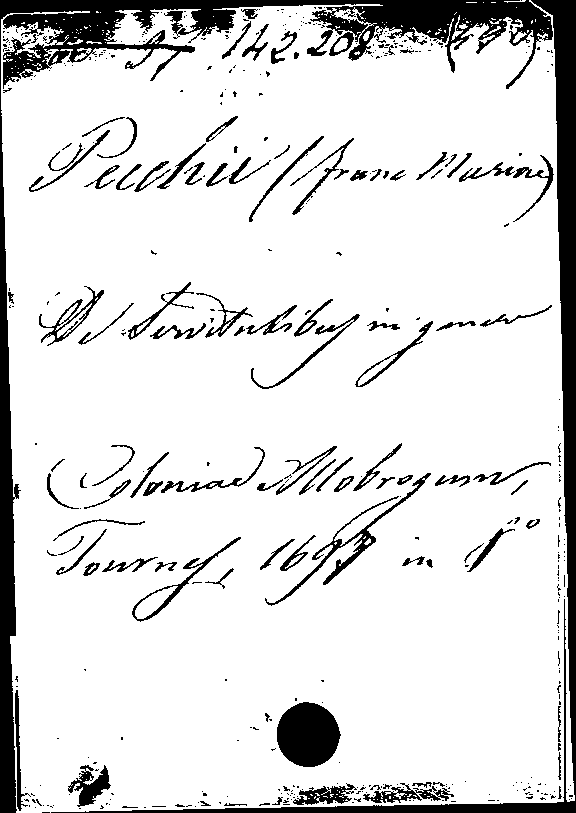 97 142.208
Pecchii (franc Mariae)
De Servitutibus in genere
Coloniae Allobrogum,
Tournes, 1697 in fo